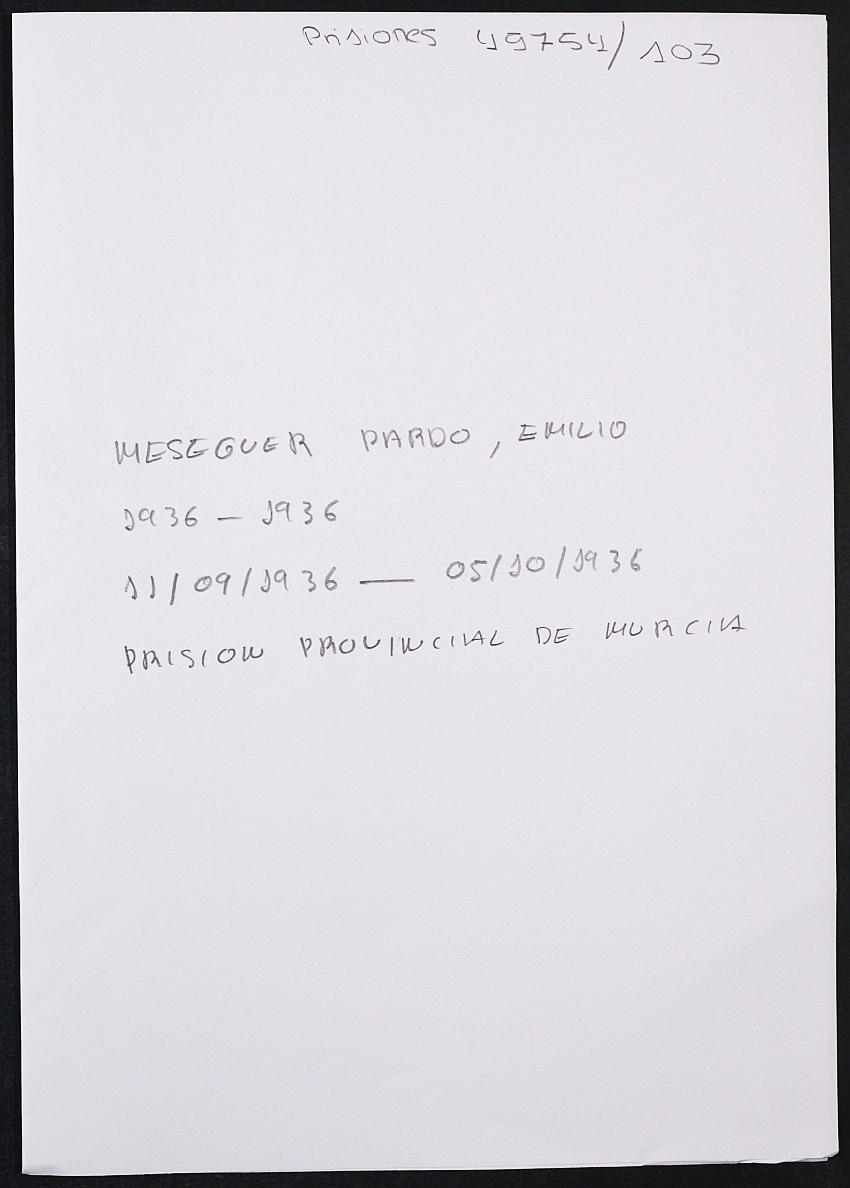 Prisiones 49754/103
MESEGUER PARDO, EMILIO
1936 - 1936
11/09/1936 — 05/10/1936
PRISION PROVINCIAL DE MURCIA